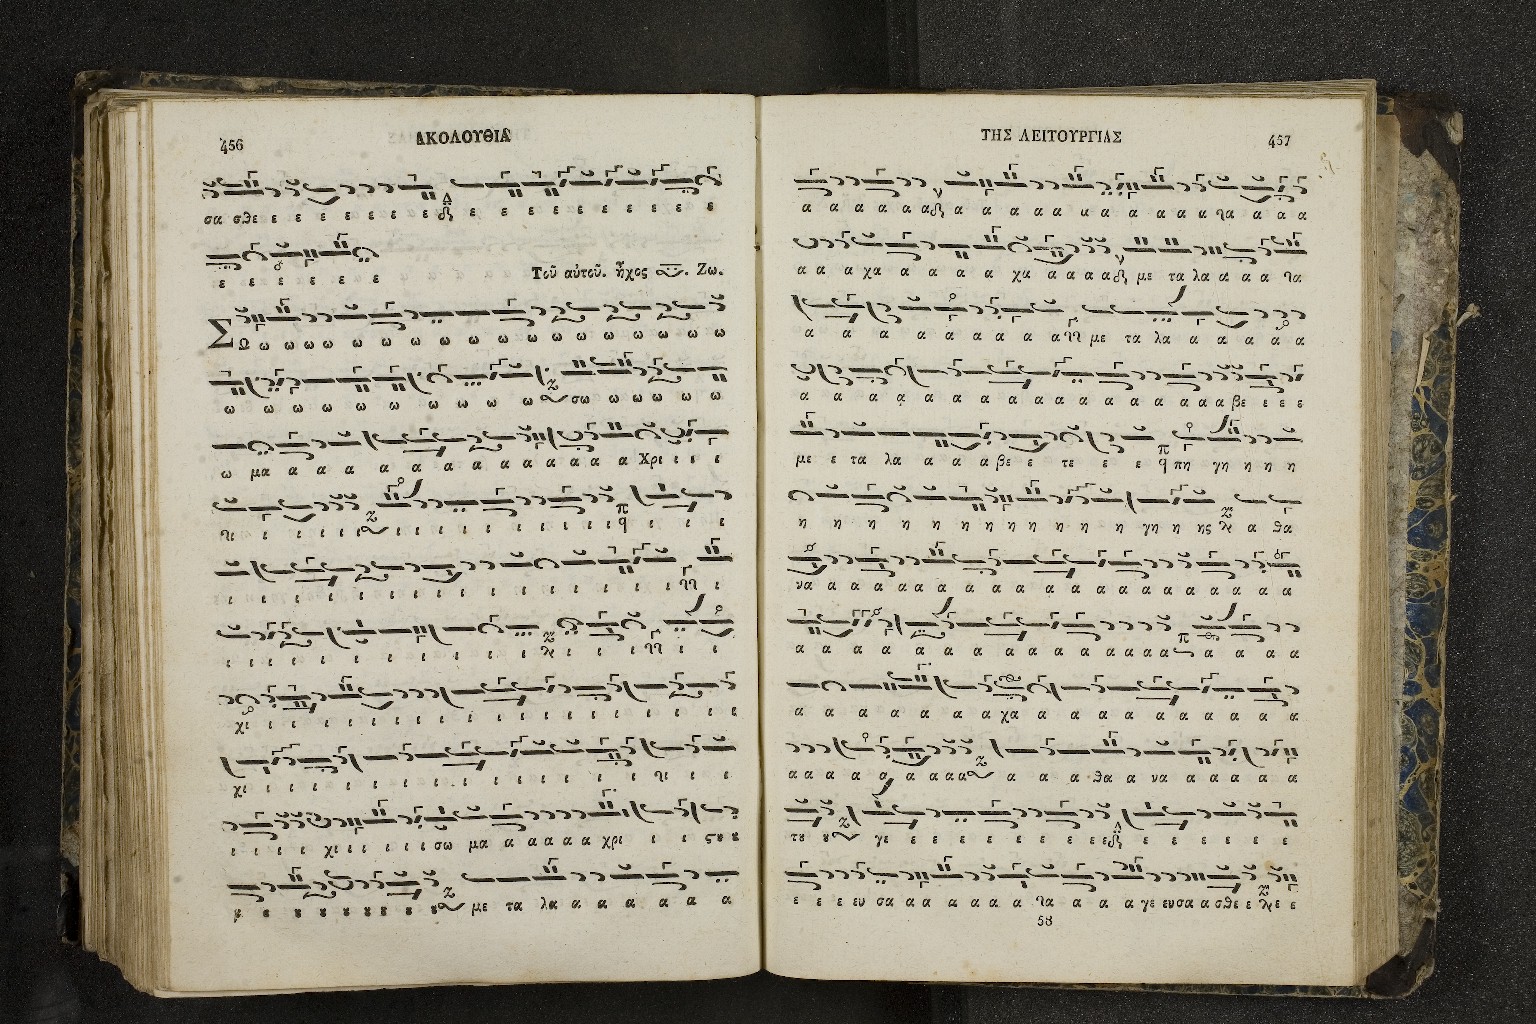 456
ΑΚΟΛΟΥΘΙΑ
σα σθε ε ε ε ε ε ε ε ε ε ε ε ε ε ε ε ε
ε ε ε ε ε ε
Τοῦ αὐτοῦ. ἦχος Ζω.
ΣΩ ω ω ω ω ω ω ω ω ω ω ω ω ω ω ω ω
ω ω ω ω ω ω ω ω ω ω σω ω ω ω ω ω
ω μα α α α α α α α α α α α α Χρι ι ι ι
ι ι ι ι ι ι ι ι ι ι ι ι ι ι ι
ι ι ι ι ι ι ι ι ι ι ι ι ι ι
ι ι ι ι ι ι ι ι ι ι ι ι ι ι
χι ι ι ι ι ι ι ι ι ι ι ι ι ι ι ι ι
χι ι ι ι ι ι ι ι ι ι ι ι ι ι
ι ι ι ι χι ι ι ι ι ι σω μα α α α α α χρι ι ι ςȣ ȣ
ȣ ȣ ȣ ȣ ȣ ȣ ȣ ȣ ȣ με τα λα α α α α α α
ΤΗΣ ΛΕΙΤΟΥΡΓΙΑΣ
457
α α α α α α α α α α α α α α α α α α α α
α α α χα α α α α χα α α α α με τα λα α α α
α α α α α α α α α με τα λα α α α α α
α α α α α α α α α α α α α α α α α α βε ε ε ε
με ε τα λα α α α βε ε τε ε ε ε πη γη η η η
η η η η η η η η η η η η γη η ης α θα
να α α α α α α α α α α α α α α α α α α
α α α α α α α α α α α α α α α α α α α α
α α α α α α α χα α α α α α α α α α α
α α α α α α α α α α α α θα α να α α α α α
τȣ ȣ γε ε ε ε ε ε ε ε ε ε ε ε ε ε ε ε ε
ε ε ε ευ σα α α α α α α α α α γε ευσα α σθε ε ε ε
58